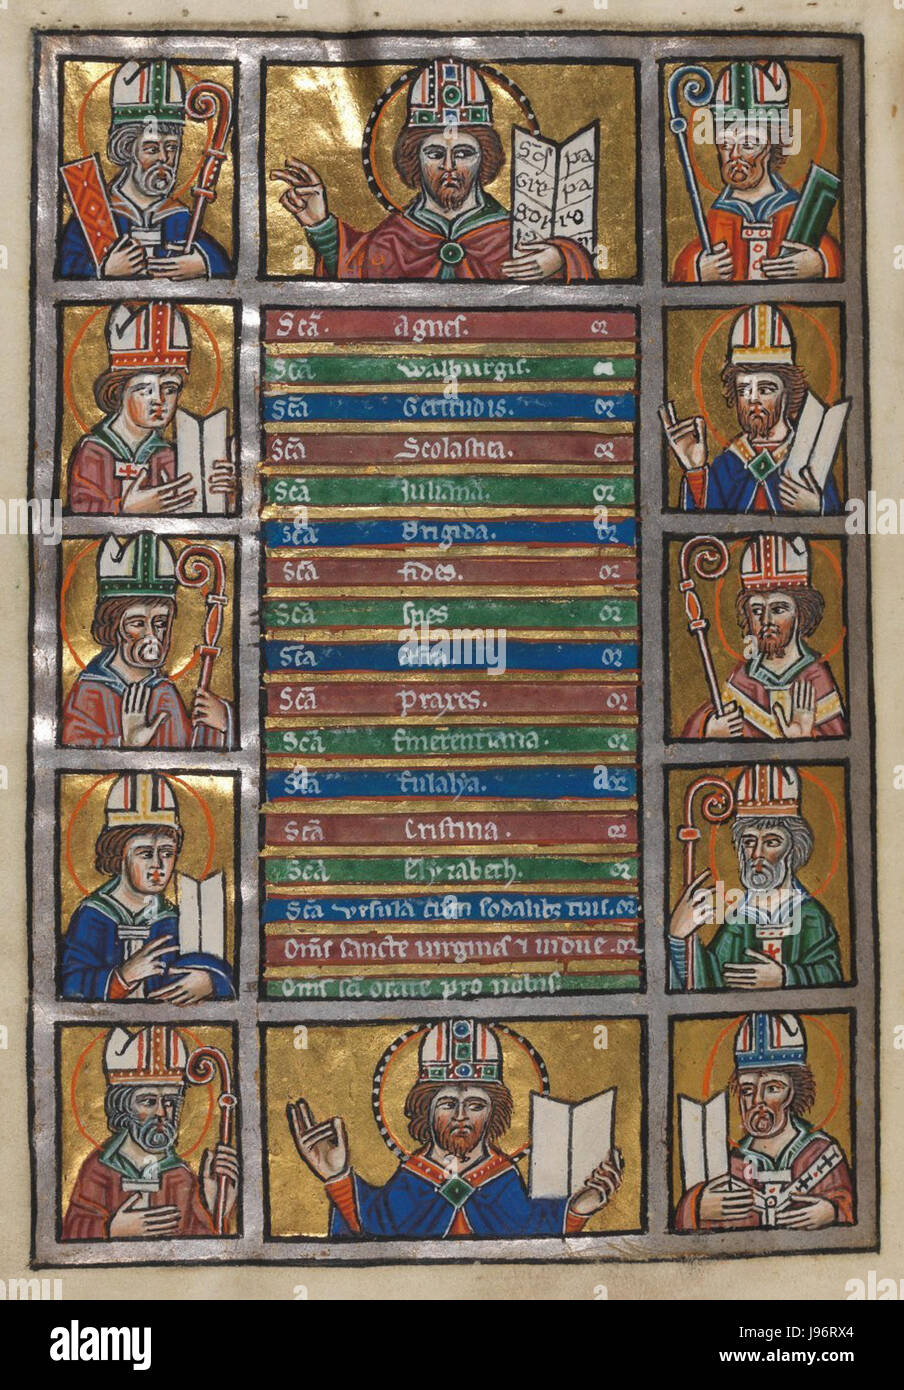 Scā. Agnes. or
Scā Walburgis. or
Scā Gertrudis. or
Scā Scolastica. or
Scā Juliana. or
Scā Brigida. or
Scā fides. or
Scā spes or
Scā or
Scā praxes. or
Scā Emerentiana. or
Scā Eulalya. or
Scā Cristina. or
Scā Elyzabeth. or
Scā vrsula cum sodalibȝ tuis. or
Om̄s sancte uirgines ⁊ uidue. or
Om̄s scī orate pro nobis
alamy
Image ID: J96RX4
www.alamy.com